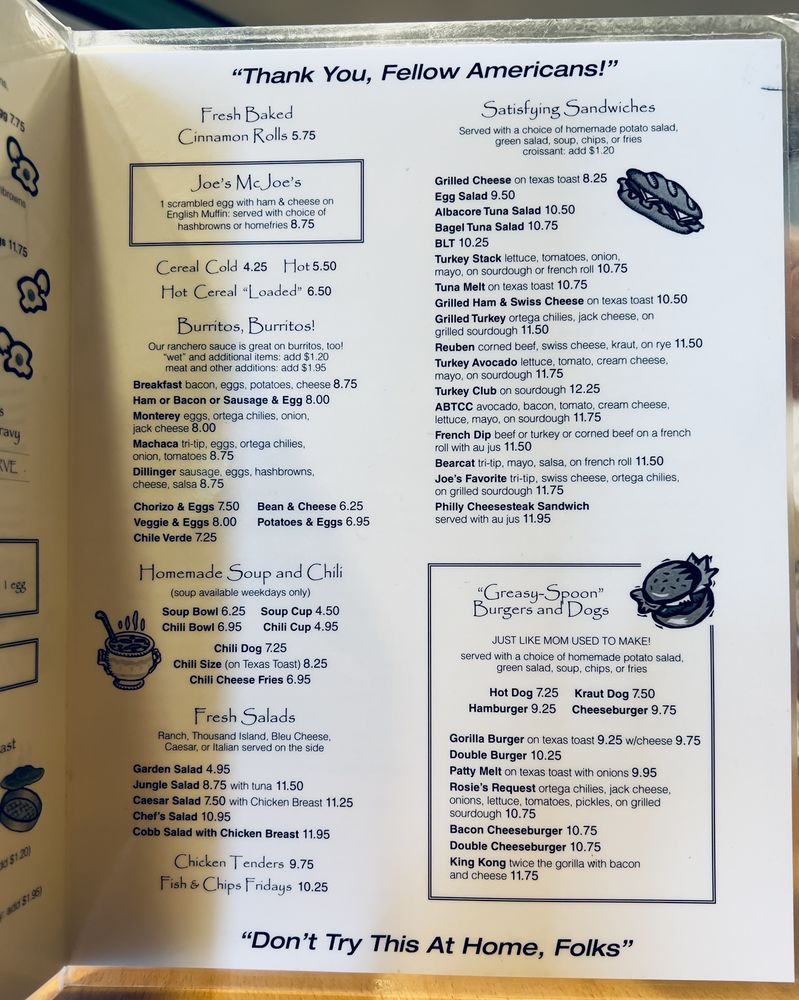 "Thank You, Fellow Americans!"
Fresh Baked
Cinnamon Rolls 5.75
Joe's McJoe's
1 scrambled egg with ham & cheese on
English Muffin: served with choice of
hashbrowns or homefries 8.75
Cereal Cold 4.25 Hot 5.50
Hot Cereal "Loaded" 6.50
Burritos, Burritos!
Our ranchero sauce is great on burritos, too!
"wet" and additional items: add $1.20
meat and other additions: add $1.95
Breakfast bacon, eggs, potatoes, cheese 8.75
Ham or Bacon or Sausage & Egg 8.00
Monterey eggs, ortega chilies, onion,
jack cheese 8.00
Machaca tri-tip, eggs, ortega chilies,
onion, tomatoes 8.75
Dillinger sausage, eggs, hashbrowns,
cheese, salsa 8.75
Chorizo & Eggs 7.50 Bean & Cheese 6.25
Veggie & Eggs 8.00 Potatoes & Eggs 6.95
Chile Verde 7.25
Homemade Soup and Chili
(soup available weekdays only)
Soup Bowl 6.25 Soup Cup 4.50
Chili Bowl 6.95 Chili Cup 4.95
Chili Dog 7.25
Chili Size (on Texas Toast) 8.25
Chili Cheese Fries 6.95
Fresh Salads
Ranch, Thousand Island, Bleu Cheese,
Caesar, or Italian served on the side
Garden Salad 4.95
Jungle Salad 8.75 with tuna 11.50
Caesar Salad 7.50 with Chicken Breast 11.25
Chef's Salad 10.95
Cobb Salad with Chicken Breast 11.95
Chicken Tenders 9.75
Fish & Chips Fridays 10.25
Satisfying Sandwiches
Served with a choice of homemade potato salad,
green salad, soup, chips, or fries
croissant: add $1.20
Grilled Cheese on texas toast 8.25
Egg Salad 9.50
Albacore Tuna Salad 10.50
Bagel Tuna Salad 10.75
BLT 10.25
Turkey Stack lettuce, tomatoes, onion,
mayo, on sourdough or french roll 10.75
Tuna Melt on texas toast 10.75
Grilled Ham & Swiss Cheese on texas toast 10.50
Grilled Turkey ortega chilies, jack cheese, on
grilled sourdough 11.50
Reuben corned beef, swiss cheese, kraut, on rye 11.50
Turkey Avocado lettuce, tomato, cream cheese,
mayo, on sourdough 11.75
Turkey Club on sourdough 12.25
ABTCC avocado, bacon, tomato, cream cheese,
lettuce, mayo, on sourdough 11.75
French Dip beef or turkey or corned beef on a french
roll with au jus 11.50
Bearcat tri-tip, mayo, salsa, on french roll 11.50
Joe's Favorite tri-tip, swiss cheese, ortega chilies,
on grilled sourdough 11.75
Philly Cheesesteak Sandwich
served with au jus 11.95
"Greasy-Spoon"
Burgers and Dogs
JUST LIKE MOM USED TO MAKE!
served with a choice of homemade potato salad,
green salad, soup, chips, or fries
Hot Dog 7.25 Kraut Dog 7.50
Hamburger 9.25 Cheeseburger 9.75
Gorilla Burger on texas toast 9.25 w/cheese 9.75
Double Burger 10.25
Patty Melt on texas toast with onions 9.95
Rosie's Request ortega chilies, jack cheese,
onions, lettuce, tomatoes, pickles, on grilled
sourdough 10.75
Bacon Cheeseburger 10.75
Double Cheeseburger 10.75
King Kong twice the gorilla with bacon
and cheese 11.75
"Don't Try This At Home, Folks"
7.75
11.75
1 egg